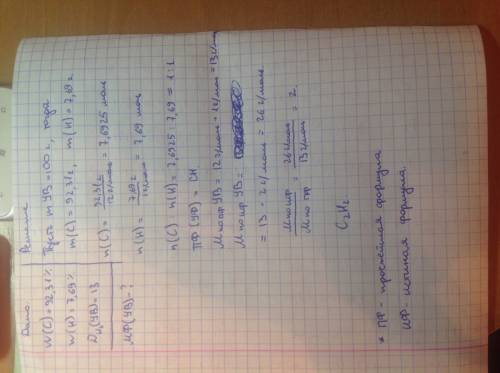 Дано
W(C) = 92,31%
w(H) = 7,69%
D H₂(УВ) = 13
МФ(УВ) - ?
Решение
Пусть m УВ = 100 г, тогда
m(C) = 92,31г, m(H) = 7,69 г
n(C) = 92,31г / 12 г/моль = 7,6925 моль
n(H) = 7,69 г / 1 г/моль = 7,69 моль
n(C) : n(H) = 7,6925 : 7,69 = 1 : 1
ПФ (УВ) = CH
M по пф УВ = 12 г/моль + 1 г/моль = 13 г/моль
M по ис УВ =
= 13 · 2 г/моль = 26 г/моль
M по иф / M по пф = 26 г/моль / 13 г/моль = 2
C₂H₂
* ПФ - простейшая формула
ИФ - истиная формула.